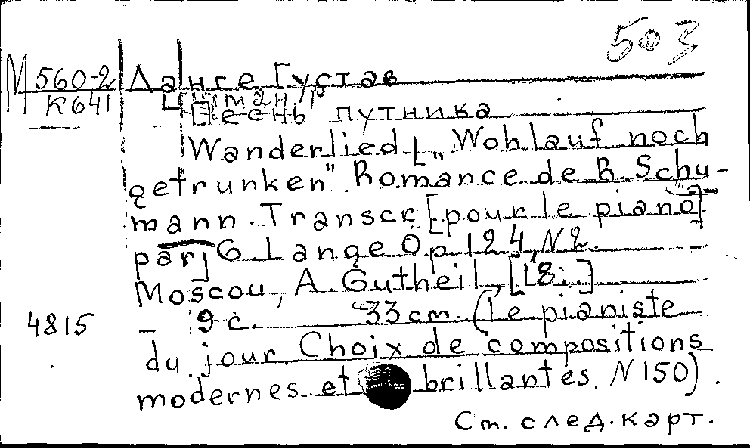 503
М 560-2 Ланге Густав
К 641 [Шуман Р.]
Песнь путника
Wanderlied [„Wohlauf noch
getrunken". Romance de R. Schu-
mann. Transcr. [pour le piano
par] G. Lange Op. 124, N 2.
Moscou, A. Gutheil, [18..]
4815 – 9 с. 33 cm. (Le pianiste
du jour Choix de compositions
modernes et brillantes. N 150).
См. след. карт.